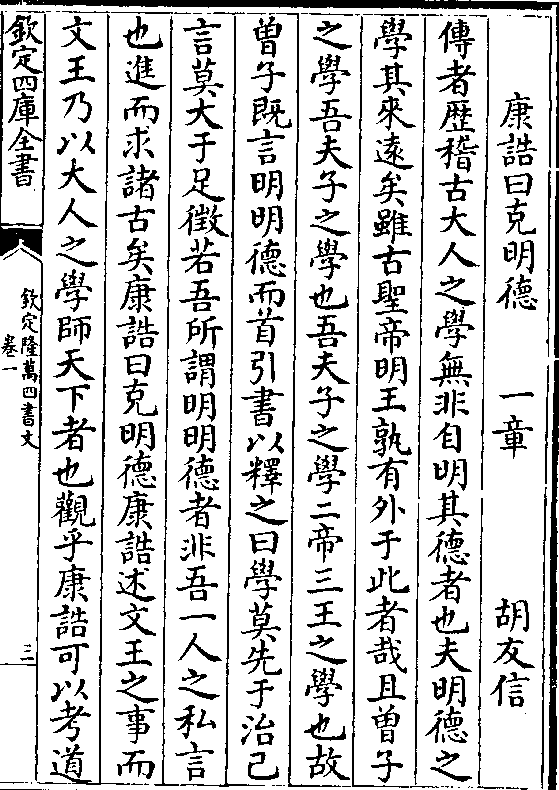 康誥曰克明德 一章 胡友信
傳者歴稽古大人之學無非自明其德者也夫明德之
學其來逺矣雖古聖帝明王孰有外于此者哉且曽子
之學吾夫子之學也吾夫子之學二帝三王之學也故
曽子既言明明德而首引書以釋之曰學莫先于治己
言莫大于足徴若吾所謂明明德者非吾一人之私言
也進而求諸古矣康誥曰克明德康誥述文王之事而
文王乃以大人之學師天下者也觀乎康誥可以考道
欽定四庫全書
欽定隆萬四書文
卷一
三